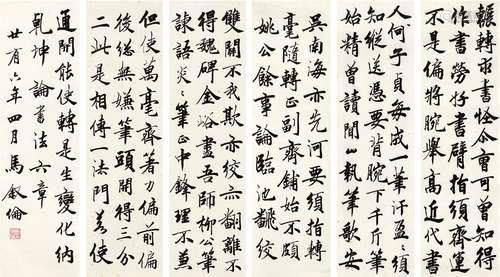 輾轉求書怪尒曹可曾知得
作書勞好書臂指須齊運
不是偏將腕舉高近代書
人何子貞每成一筆汗盈盈須
知縱送憑要背腕下千斤筆
始精曾讀閒山執筆歌安
吳南海亦先河須指轉
毫隨轉正副齊鋪始不頗
姚公餘事論臨池翻絞
雙關不我欺亦絞亦翻離不
得魏碑金峪盡吾師柳公筆
諫語炎〻筆正中鋒理不兼
但使萬毫齊著力偏前偏
後總無嫌筆頭開得三分
二此是相傳一法門若使
通開能使轉是生變化納
乾坤 論書法六章
廿有六年四月馬敘倫